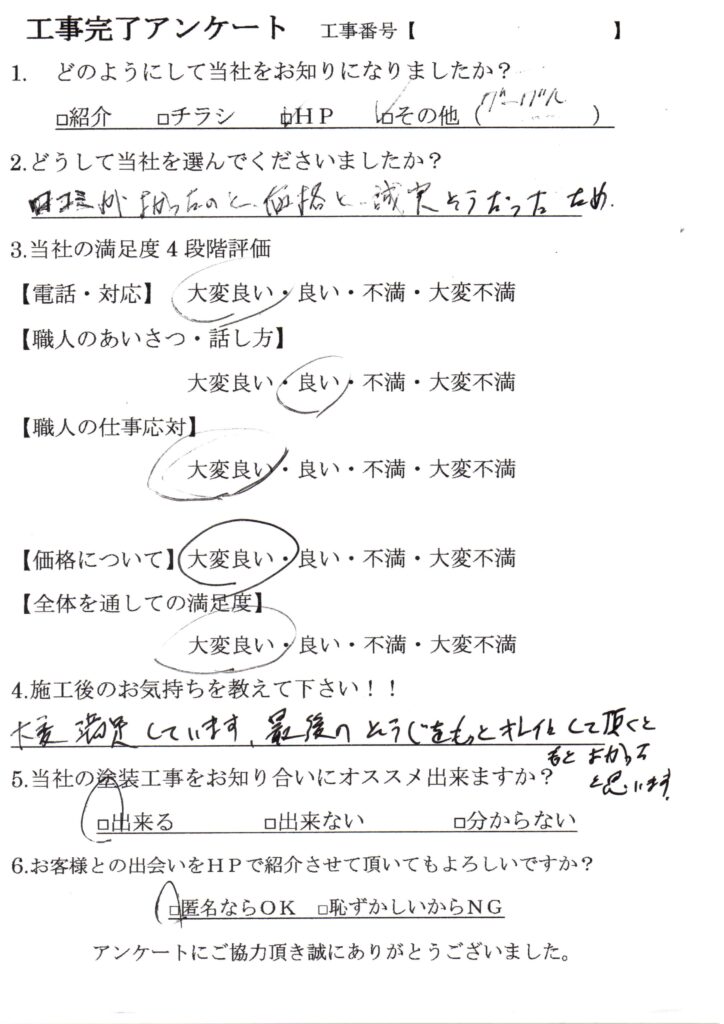 工事完了アンケート 工事番号【 】
1. どのようにして当社をお知りになりましたか？
□紹介 □チラシ □HP □その他（グーグル）
2.どうして当社を選んでくださいましたか？
口コミが よかったのと、価格と、誠実そうだった ため.
3.当社の満足度4段階評価
【電話・対応】 大変良い・良い・不満・大変不満
【職人のあいさつ・話し方】
大変良い・良い・不満・大変不満
【職人の仕事応対】
大変良い・良い・不満・大変不満
【価格について】大変良い・良い・不満・大変不満
【全体を通しての満足度】
大変良い・良い・不満・大変不満
4.施工後のお気持ちを教えて下さい！！
大変 満足 しています、最後の そうじをもっとキレイにして頂くと
もっと よかった
と思います
5.当社の塗装工事をお知り合いにオススメ出来ますか？
□出来る □出来ない □分からない
6.お客様との出会いをHPで紹介させて頂いてもよろしいですか？
□匿名ならOK □恥ずかしいからNG
アンケートにご協力頂き誠にありがとうございました。